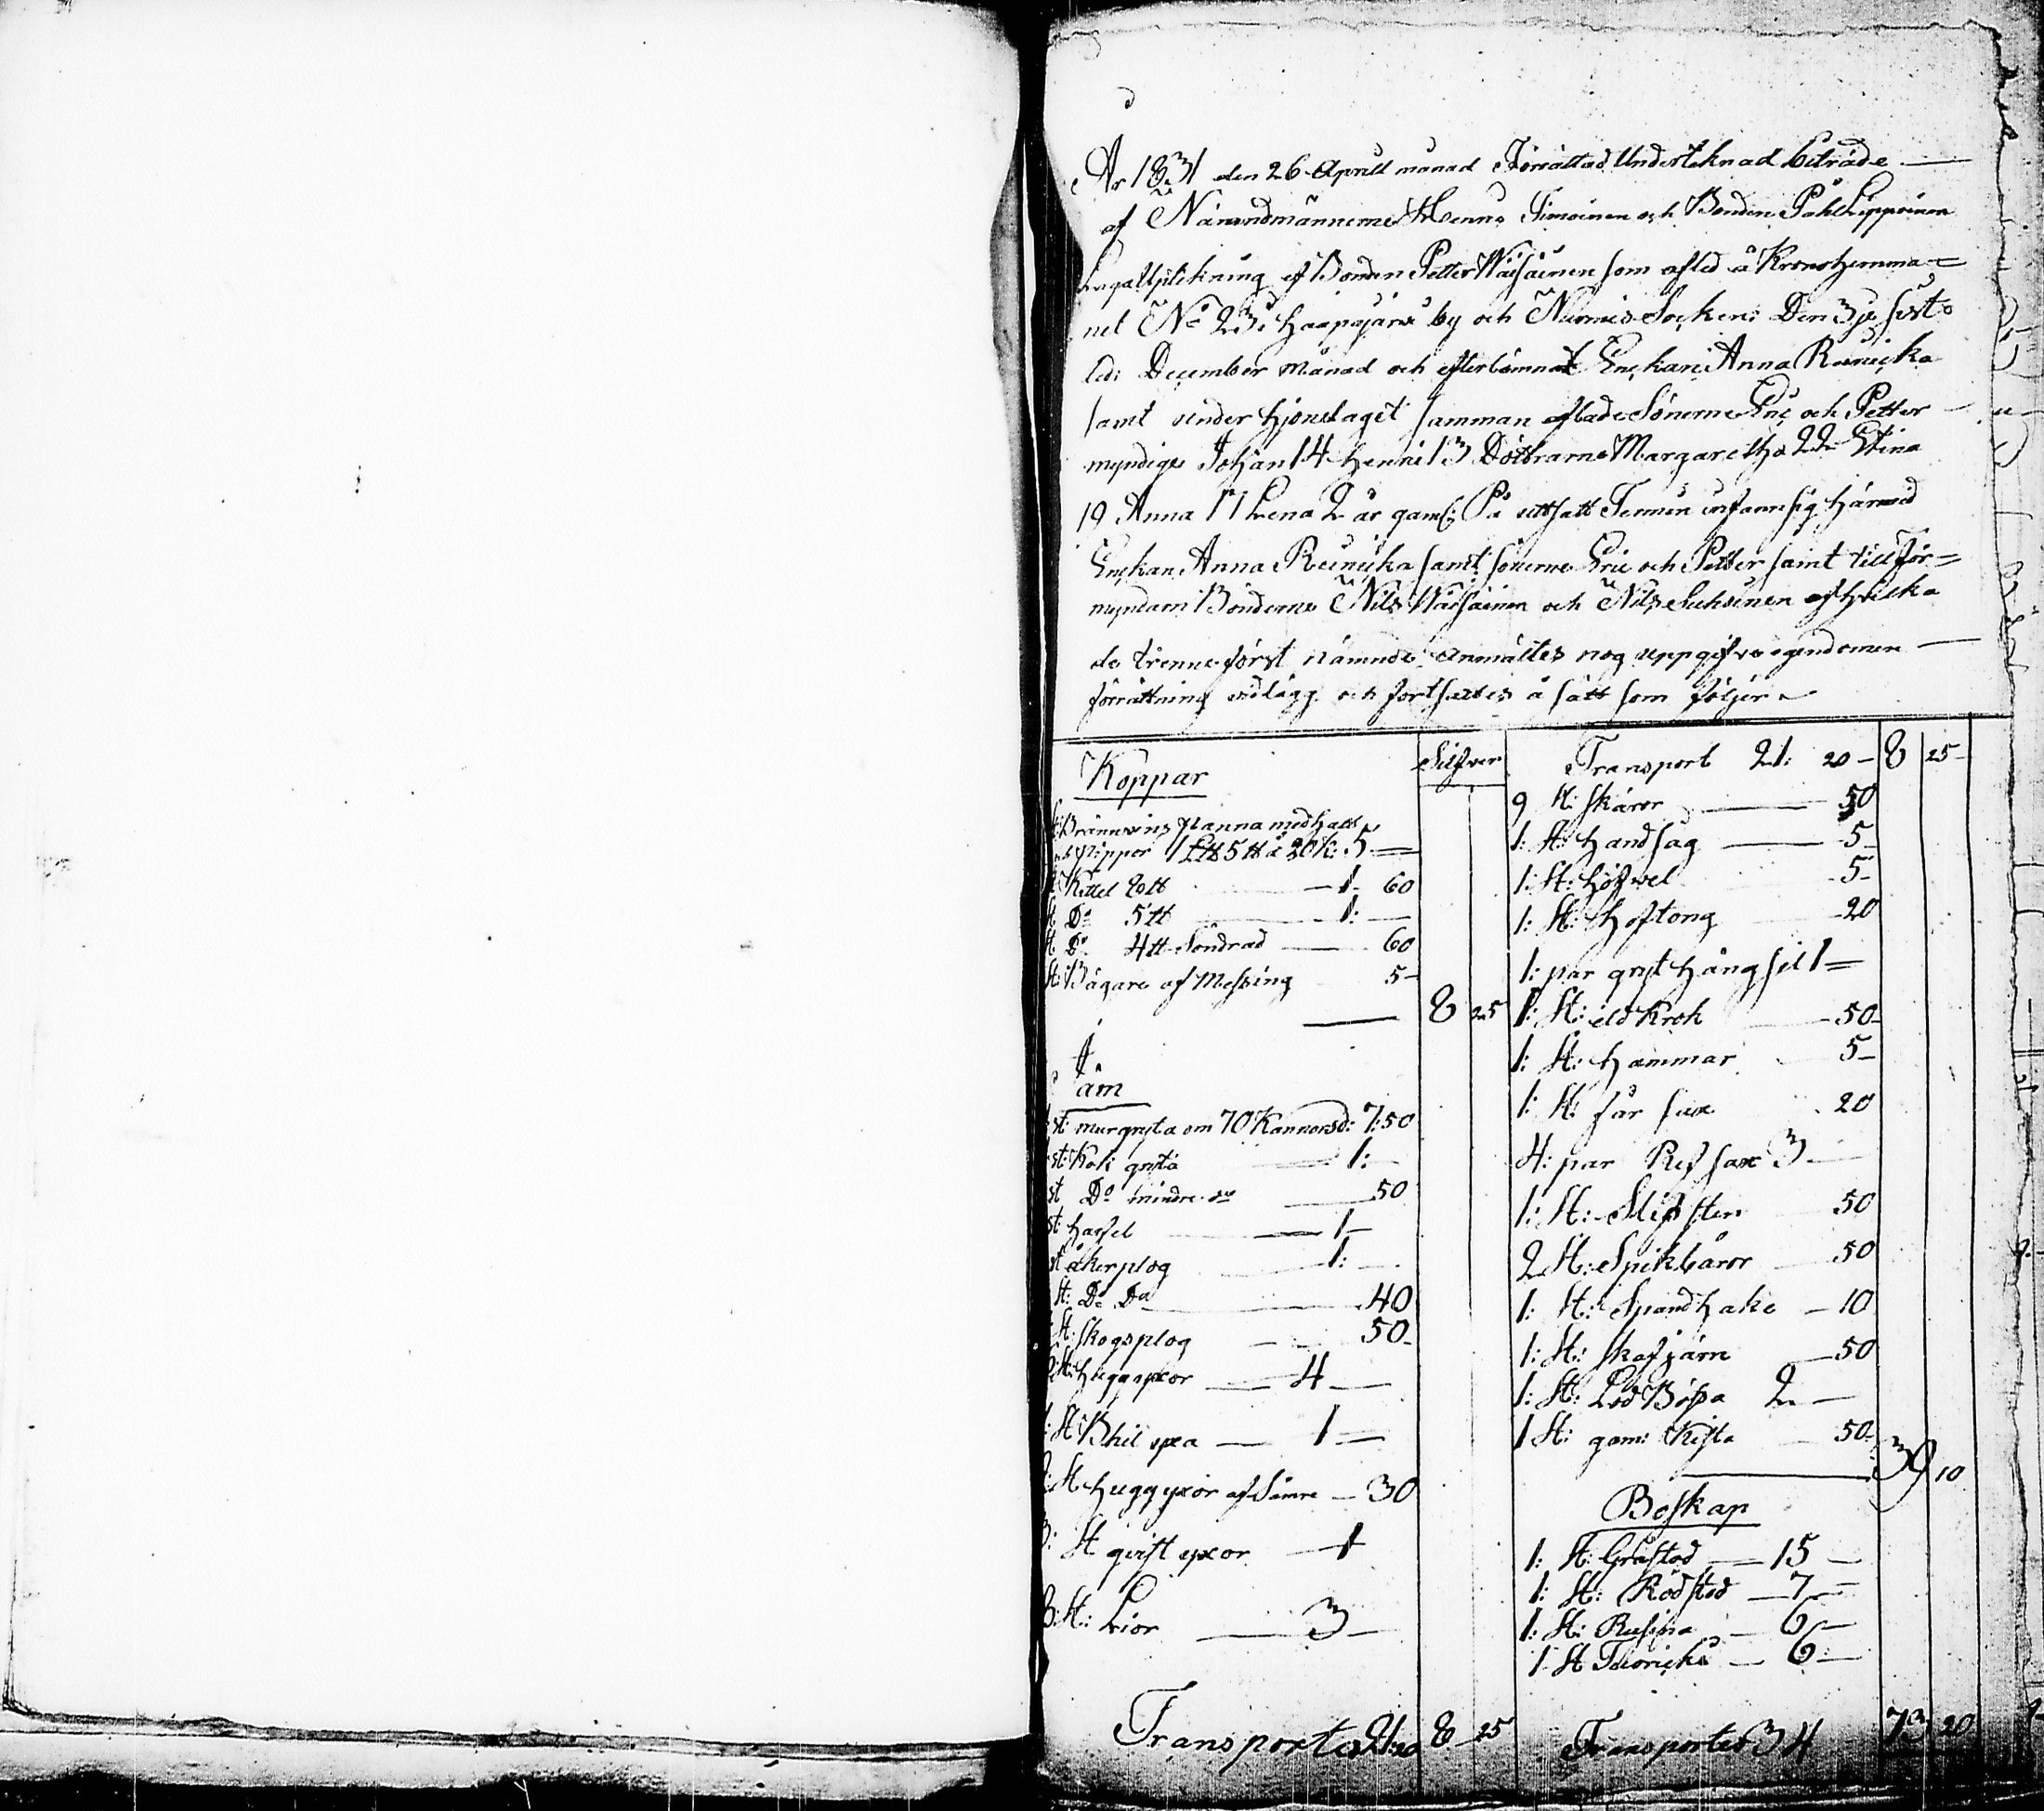 År 1831 den 26 Aprill månad Förrättad Underteknad biträde
af Nämndmännerne Henns Timoinen och Bonden Påhl Lippoinen
Laga Uptekning ef Bonden Petter Wäisäinen som afled å Kronohemma=
net No 23 i Haapajärvi by och Nurmis Socken: Den 3je sist
led: December månad och efterlämnat Enckan Anna Reinicka
samt under hjonelaget samman aflade Sönerne Eric och Petter
myndige Johan 14 Henric 13 Döttrarne Margaretha 22 Stina
19 Anna 17 Lena 2 år gaml: På uttsatt Termin infann sig härvid
Enckan Anna Reinicka samt sönerne Eric och Petter samt till för=
myndare Bönderne Nils Wäisäinen och Nils Suhoinen af hvilka
de trenne först nämnde anmältes nog uppgifva egendomen
förrättning vidlägg och fortsattes å sätt som följer
Koppar
Silfver
Brännvins panna med hatt
och pippor 1 L℔ 5 ℔ a 20 k: 5
Kittel 8 ℔ 1 60
st Do 5 ℔ 1:
st Do 4 ℔ Söndrad 60
st: Bägare af Messing 5
8 25
Järn
st: murgryta om 70 Kannors: 7:50
st: Kok gryta 1:
st Do mindre do 50
st: Harfel 1
st åkerplog 1:
st: Do Do 40
st: skogsplog 50
st: huggyxor 4
1: st Bhil yxa 1
st huggyxor af sämre 30
3: st qvist yxor 1
3: st: Lior 3
Transporteras 21:20 8 25
Transport 21: 20 8 25
9 st: skäror 50
1: st: handsag 5
1: st: höfvel 5
1: st: hoftong 20
1: par gryt hängsil 1
1: st: eld Krok 50
1: st: hammar 5
1: st får sax 20
4: par Ref sax 3
1: st: Slip sten 50
2 st: Spikbåror 50
1: st: Spandhake 10
1: st: skafjärn 50
1: st: Lod Bössa 2
1 st: gam: Kista 50
39 10
Boskap
1: st: Gråstod 15
1: st: Rödstod 7
1: st: Rusina 6
1 st Tuoricki 6
Transporteras 34 73 20